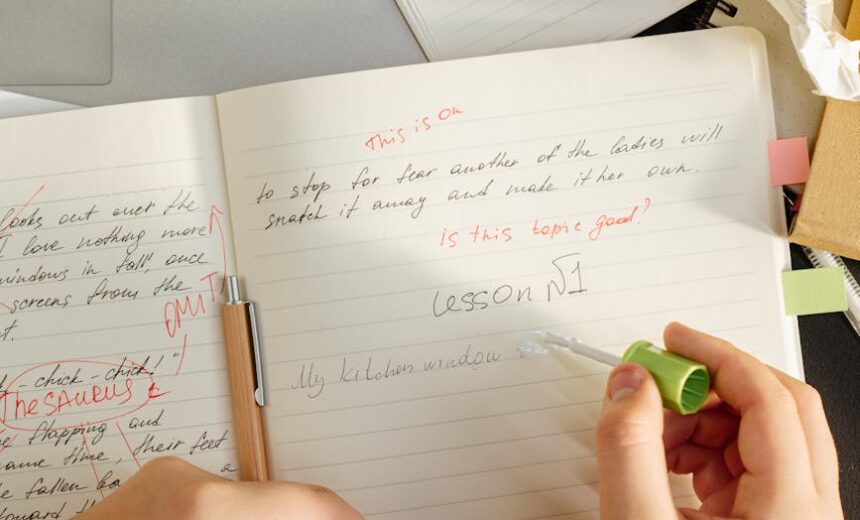 looks out over the
I love nothing more
windows in fall, once
screens from the
OMIT
-chick-chick!"
Thesaurus
flapping and
same time, their feet
fallen
a
This is OK
to stop for fear another of the ladies will
snatch it away and make it her own.
is this topic good?
Lesson №1
My kitchen window